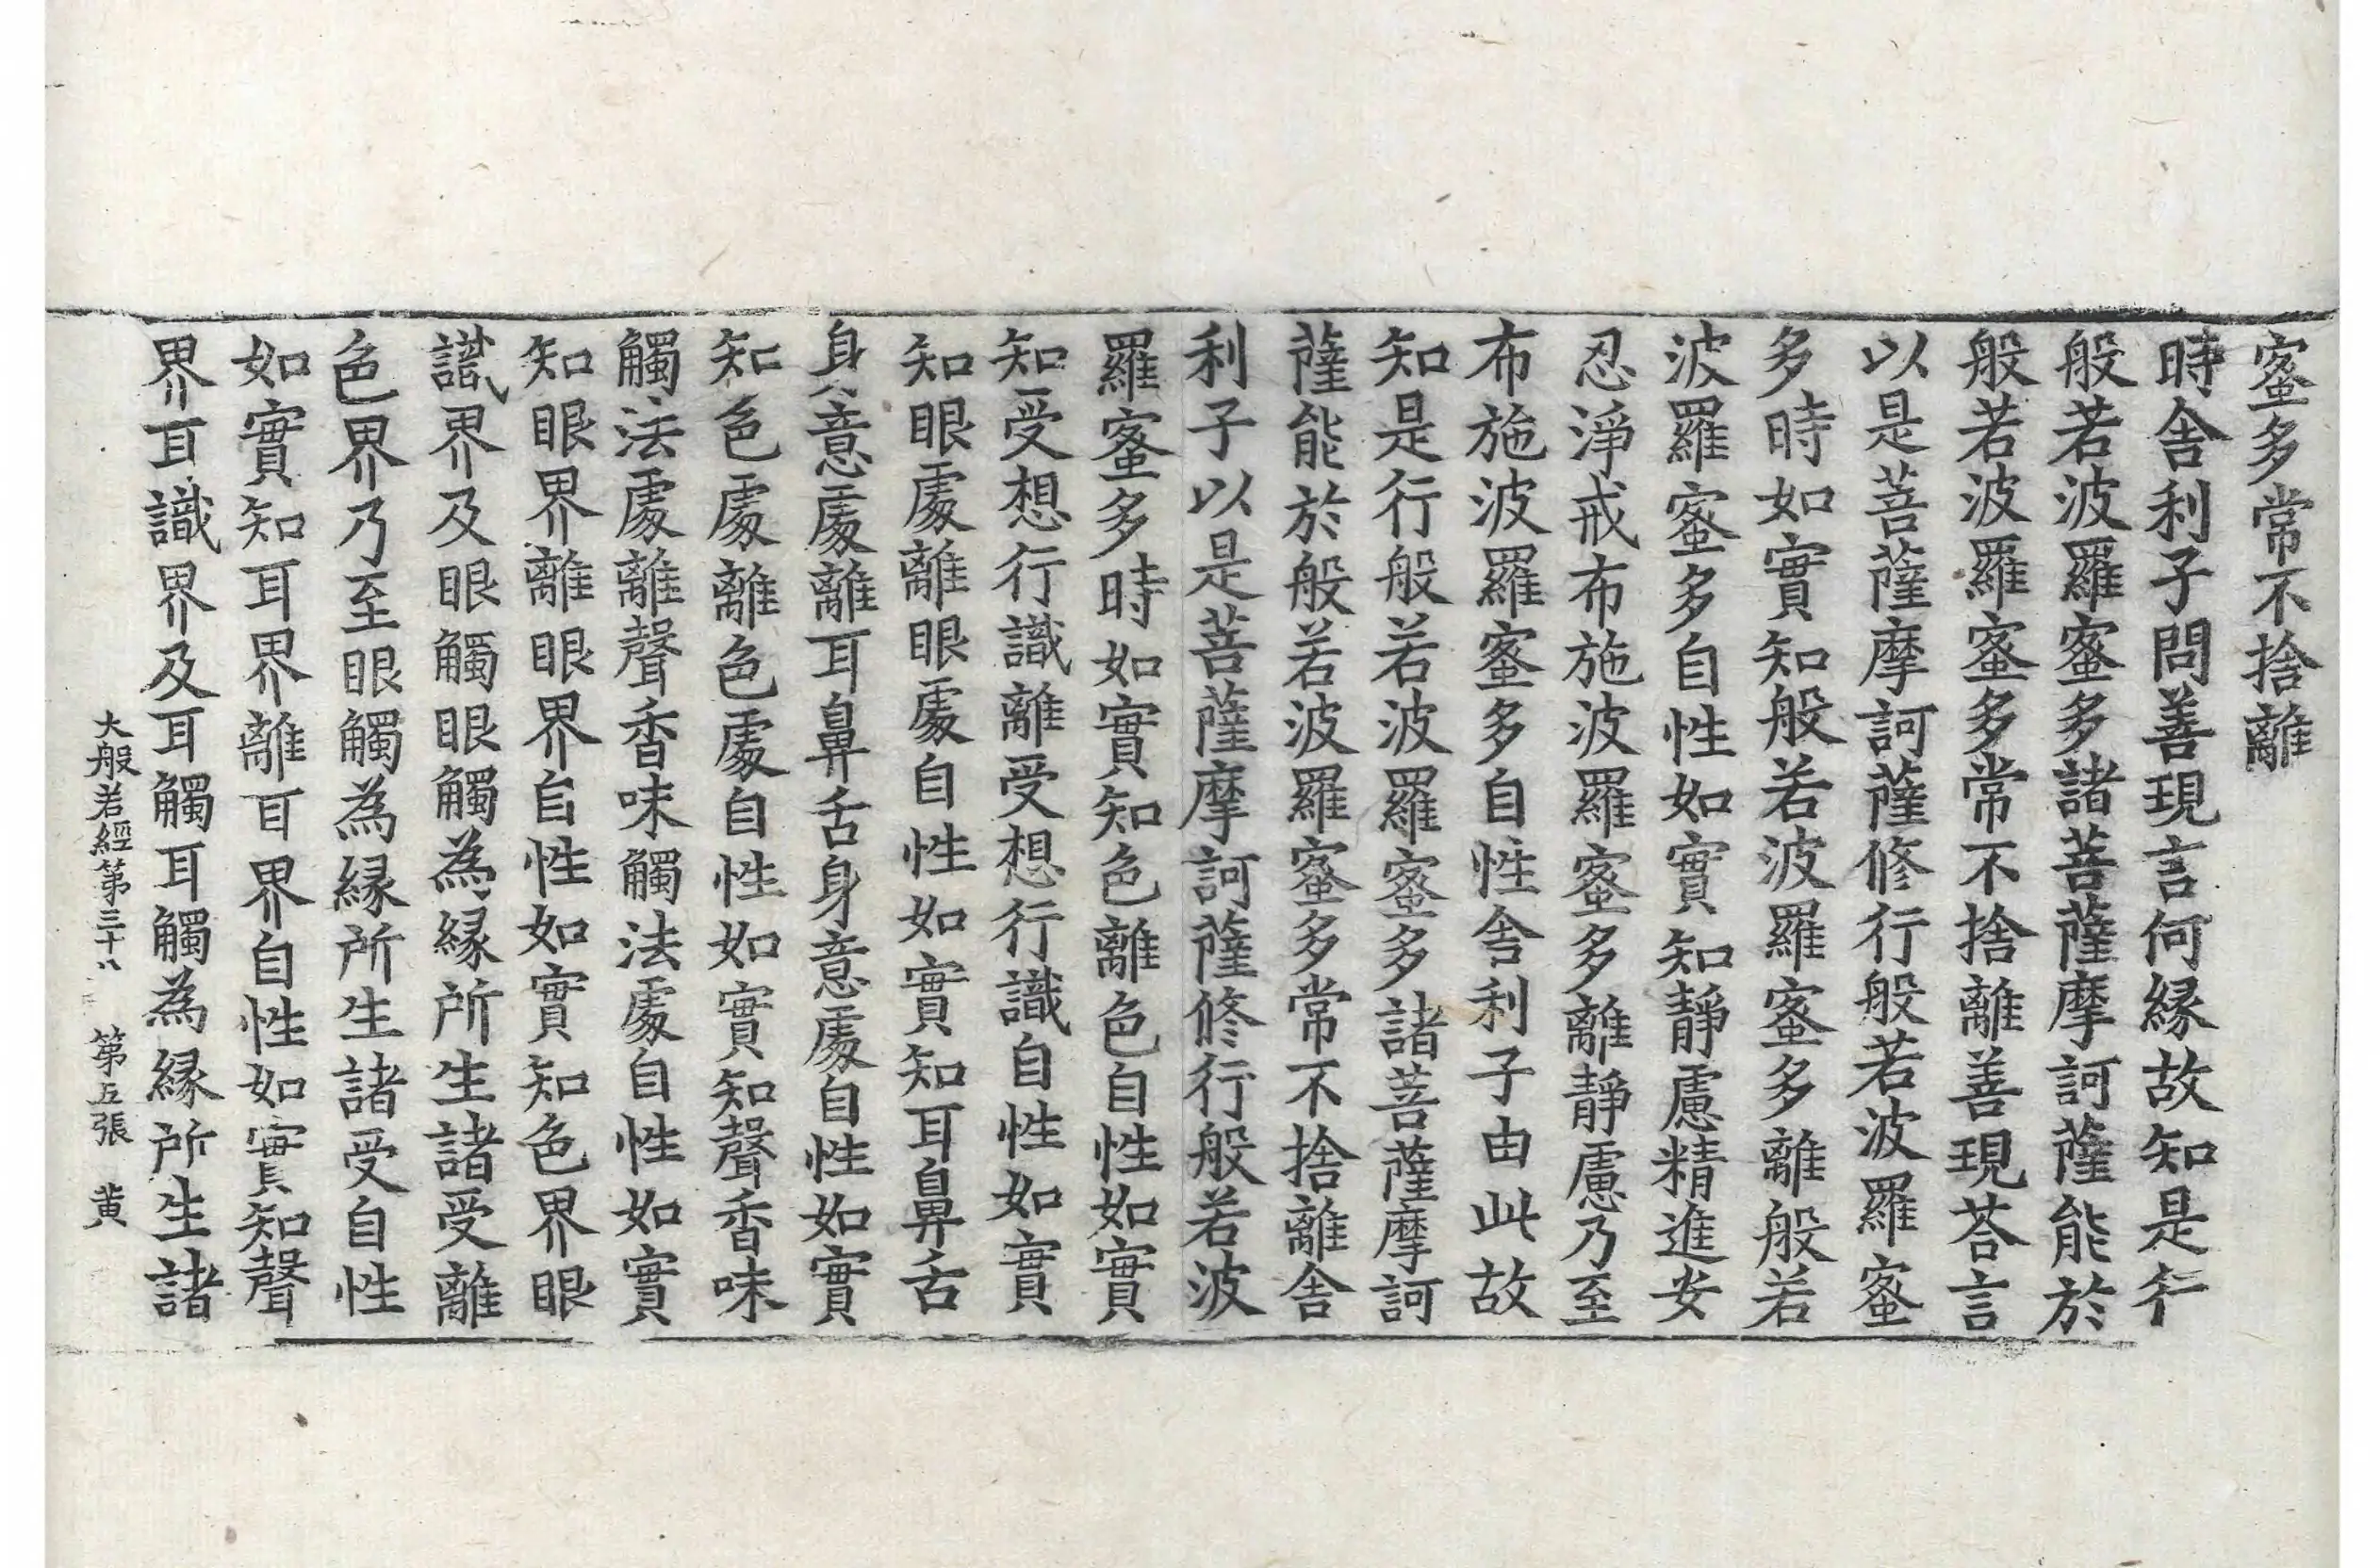 蜜多常不捨離
時舍利子問善現言何縁故知是行
般若波羅蜜多諸菩薩摩訶薩能於
般若波羅蜜多常不捨離善現荅言
以是菩薩摩訶薩修行般若波羅蜜
多時如實知般若波羅蜜多離般若
波羅蜜多自性如實知靜慮精進安
忍淨戒布施波羅蜜多離靜慮乃至
布施波羅蜜多自性舍利子由此故
知是行般若波羅蜜多諸菩薩摩訶
薩能於般若波羅蜜多常不捨離舍
利子以是菩薩摩訶薩修行般若波
羅蜜多時如實知色離色自性如實
知受想行識離受想行識自性如實
知眼處離眼處自性如實知耳鼻舌
身意處離耳鼻舌身意處自性如實
知色處離色處自性如實知聲香味
觸法處離聲香味觸法處自性如實
知眼界離眼界自性如實知色界眼
識界及眼觸眼觸為縁所生諸受離
色界乃至眼觸為縁所生諸受自性
如實知耳界離耳界自性如實知聲
界耳識界及耳觸耳觸為縁所生諸
大般若經第三十六 第五張 黄